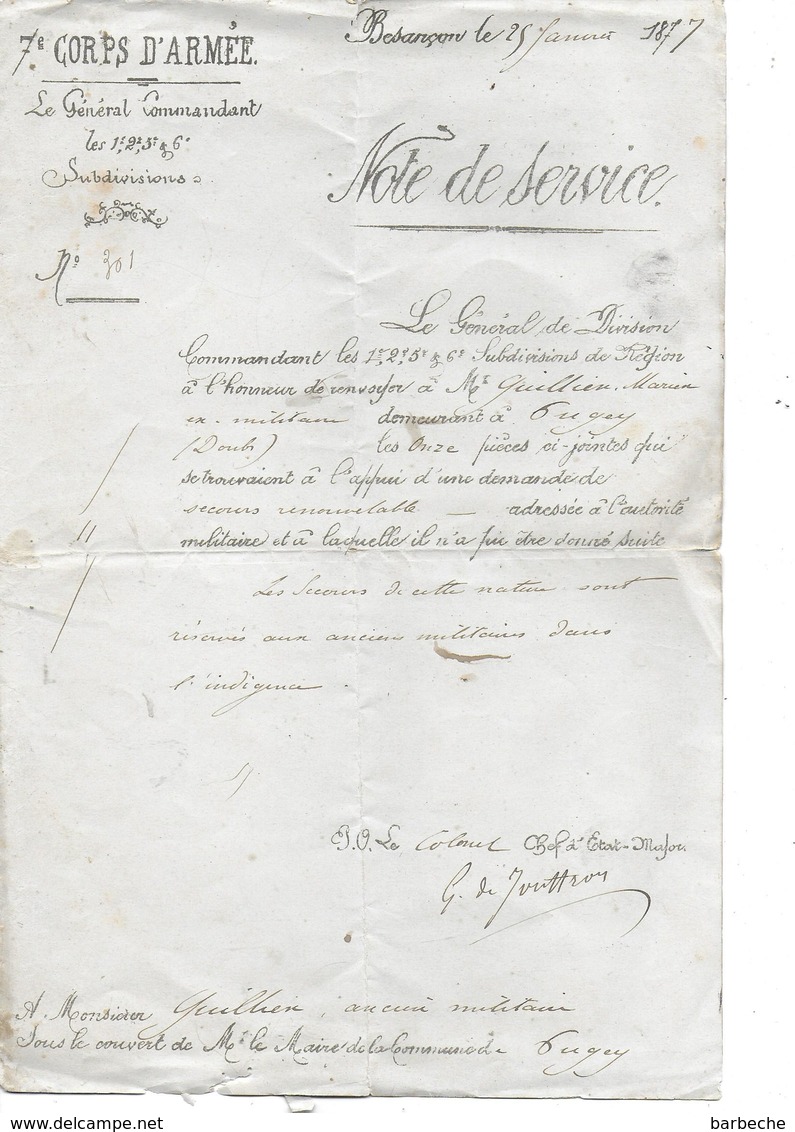 7e CORPS D'ARMÉE.
Le Général Commandant
les 1e, 2e, 5e & 6e
Subdivisions
No 301
Besançon le 25 Janvier 1877
Note de service.
Le Général de Division
Commandant les 1e, 2e, 5e & 6e Subdivisions de Région
à l'honneur de renvoyer à Mr Guillien, Marien
ex-militaire demeurant à Pugey
(Doubs) les Onze pièces ci-jointes qui
se trouvaient à l'appui d'une demande de
secours renouvelable — adressée à l'autorité
militaire et à laquelle il n'a pu être donné suite
Les Secours de cette nature sont
réservés aux anciens militaires dans
l'indigence.
P.O. Le Colonel Chef d'Etat-Major.
G. de
A Monsieur Guillien, ancien militaire
Sous le couvert de Mr le Maire de la Commune de Pugey
barbeche